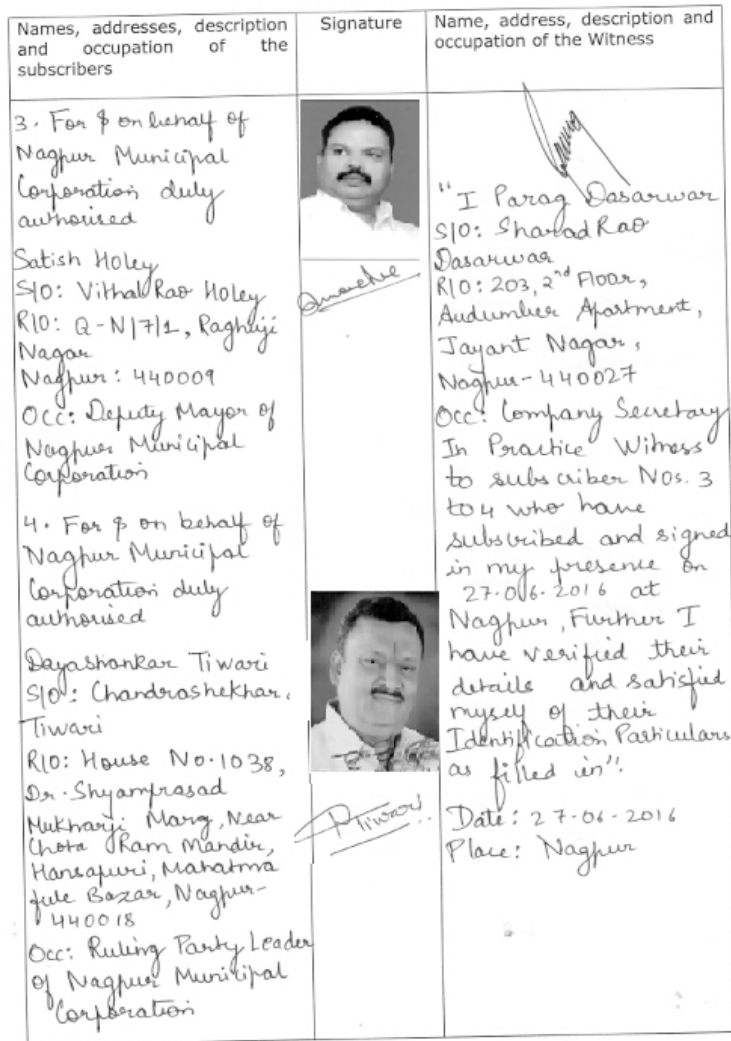 Names, addresses, description
and occupation of the
subscribers
Signature
Name, address, description and
occupation of the Witness
3. For & on behalf of
Nagpur Municipal
Corporation duly
authorised
Satish Holey
S/O: Vithal Rao Holey
R/O: Q-N/7/1, Raghuji
Nagar
Nagpur: 440009
Occ: Deputy Mayor of
Nagpur Municipal
Corporation
4. For & on behalf of
Nagpur Municipal
Corporation duly
authorised
Dayashankar Tiwari
S/O: Chandrashekhar
Tiwari
R/O: House No. 1038,
Dr. Shyamprasad
Mukharji Marg, Near
Chota Ram Mandir,
Hansapuri, Mahatma
fule Bazar, Nagpur-
440018
Occ: Ruling Party Leader
of Nagpur Municipal
Corporation
Tiwari
"I Parag Dasarwar
S/O: Sharad Rao
Dasarwar
R/O: 203, 2nd Floor,
Audumber Apartment,
Jayant Nagar,
Nagpur-440027
Occ: Company Secretary
In Practice Witness
to subscriber Nos. 3
to 4 who have
subscribed and signed
in my presence on
27-06-2016 at
Nagpur, Further I
have verified their
details and satisfied
myself of their
Identification Particulars
as filled in".
Date: 27-06-2016
Place: Nagpur